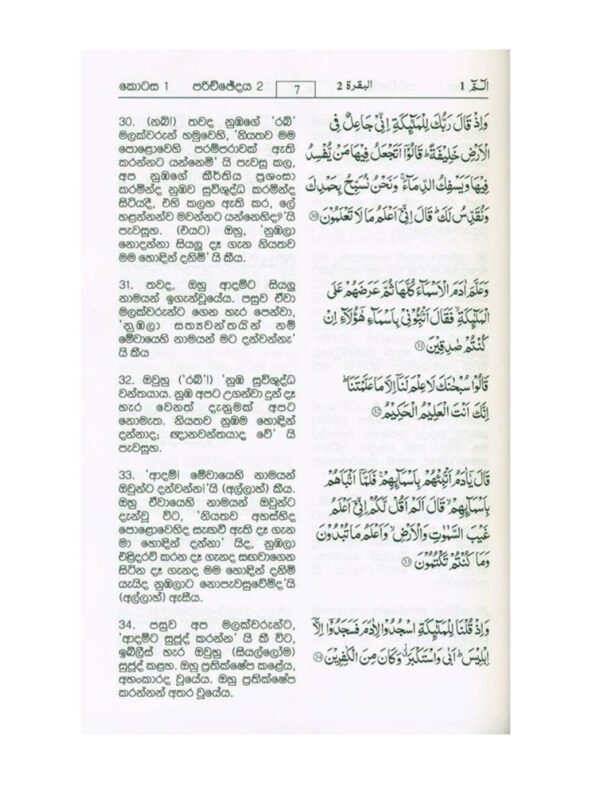 කොටස 1 පරිච්ඡේදය 2 7 البقرة ٢ الٓمّٓ ١
30. (නබි!) තවද නුඹගේ 'රබ්'
මලක්වරුන් හමුවෙහි, 'නියතව මම
පොළොවෙහි පරම්පරාවක් ඇති
කරන්නට යන්නෙමි' යි පැවසූ කල,
අප නුඹගේ කීර්තිය ප්‍රශංසා
කරමින්ද නුඹව සුවිශුද්ධ කරමින්ද
සිටියදී, එහි කලහ ඇති කර, ලේ
හළන්නන්ව මවන්නට යන්නෙහිද?'යි
පැවසූහ. (එයට) ඔහු, 'නුඹලා
නොදන්නා සියලු දෑ ගැන නියතව
මම හොඳින් දනිමි' යි කීය.
31. තවද, ඔහු ආදම්ට සියලු
නාමයන් ඉගැන්වූයේය. පසුව ඒවා
මලක්වරුන්ට ගෙන හැර පෙන්වා,
'නුඹලා සත්‍යවන්තයින් නම්
මේවායෙහි නාමයන් මට දන්වන්නැ'
යි කීය
32. ඔවුහු ('රබ්'!) 'නුඹ සුවිශුද්ධ
වන්තයාය. නුඹ අපට උගන්වා දුන් දෑ
හැර වෙනත් දැනුමක් අපට
නොමැත. නියතව නුඹම හොඳින්
දන්නාද; ඥානවන්තයාද වේ' යි
පැවසූහ.
33. 'ආදම්! මේවායෙහි නාමයන්
ඔවුන්ට දන්වන්න!'යි (අල්ලාහ්) කීය.
ඔහු ඒවායෙහි නාමයන් ඔවුන්ට
දැන්වූ විට, 'නියතව අහස්හිද
පොළොවෙහිද සැඟවී ඇති දෑ ගැන
මා හොඳින් දන්නා' යිද, නුඹලා
එළිදරව් කරන දෑ ගැනද සඟවාගෙන
සිටින දෑ ගැනද මම හොඳින් දනිමි
යැයිද නුඹලාට නොපැවසුවෙම්ද'යි
(අල්ලාහ්) ඇසීය.
34. පසුව අප මලක්වරුන්ට,
'ආදම්ට සුජූද් කරන්න' යි කී විට,
ඉබ්ලීස් හැර ඔවුහු (සියල්ලෝම)
සුජූද් කළහ. ඔහු ප්‍රතික්ෂේප කළේය,
අහංකාරද වූයේය. ඔහු ප්‍රතික්ෂේප
කරන්නන් අතර වූයේය.
وَاِذْ قَالَ رَبُّكَ لِلْمَلٰٓئِكَةِ اِنِّيْ جَاعِلٌ فِى
الْاَرْضِ خَلِيْفَةً ؕ قَالُوْٓا اَتَجْعَلُ فِيْهَا مَنْ يُّفْسِدُ
فِيْهَا وَيَسْفِكُ الدِّمَآءَ ۚ وَنَحْنُ نُسَبِّحُ بِحَمْدِكَ
وَنُقَدِّسُ لَكَ ؕ قَالَ اِنِّيْٓ اَعْلَمُ مَا لَا تَعْلَمُوْنَ ۝٣٠
وَعَلَّمَ اٰدَمَ الْاَسْمَآءَ كُلَّهَا ثُمَّ عَرَضَهُمْ عَلَى
الْمَلٰٓئِكَةِ ۙ فَقَالَ اَنْۢبِئُوْنِيْ بِاَسْمَآءِ هٰٓؤُلَآءِ اِنْ
كُنْتُمْ صٰدِقِيْنَ ۝٣١
قَالُوْا سُبْحٰنَكَ لَا عِلْمَ لَنَآ اِلَّا مَا عَلَّمْتَنَا ؕ
اِنَّكَ اَنْتَ الْعَلِيْمُ الْحَكِيْمُ ۝٣٢
قَالَ يٰٓاٰدَمُ اَنْۢبِئْهُمْ بِاَسْمَآئِهِمْ ۚ فَلَمَّآ اَنْۢبَاَهُمْ
بِاَسْمَآئِهِمْ ۙ قَالَ اَلَمْ اَقُلْ لَّكُمْ اِنِّيْٓ اَعْلَمُ
غَيْبَ السَّمٰوٰتِ وَالْاَرْضِ ۙ وَاَعْلَمُ مَا تُبْدُوْنَ
وَمَا كُنْتُمْ تَكْتُمُوْنَ ۝٣٣
وَاِذْ قُلْنَا لِلْمَلٰٓئِكَةِ اسْجُدُوْا لِاٰدَمَ فَسَجَدُوْٓا اِلَّآ
اِبْلِيْسَ ؕ اَبٰى وَاسْتَكْبَرَ ۫ وَكَانَ مِنَ الْكٰفِرِيْنَ ۝٣٤